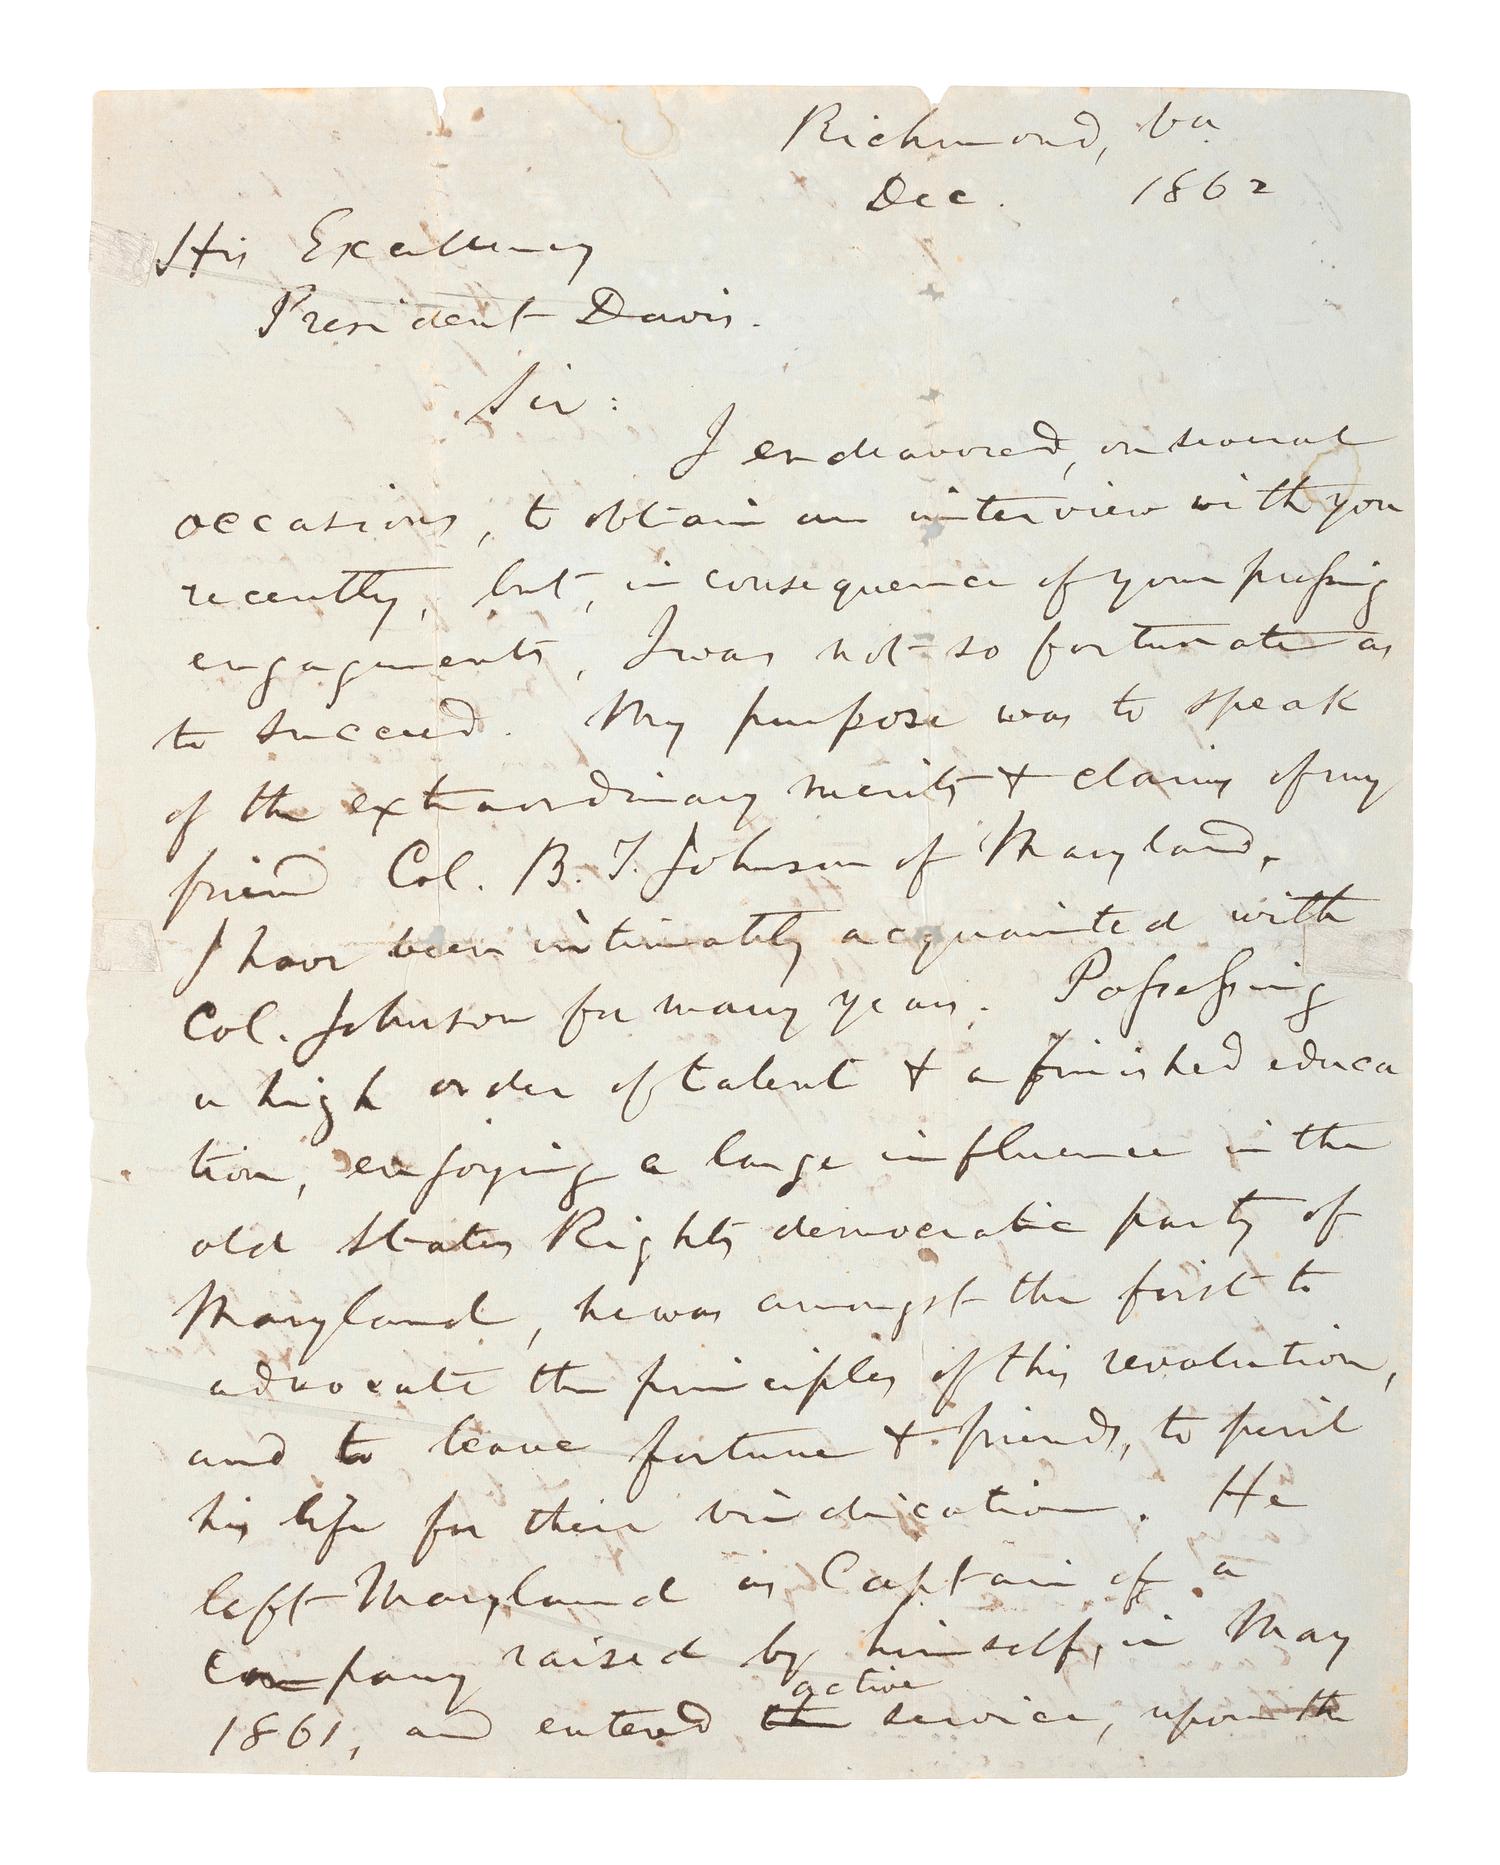 Richmond, Va.
Dec. 1862
His Excellency
President Davis.
Sir:
I endeavored, on several
occasions, to obtain an interview with you
recently, but, in consequence of your pressing
engagements, I was not so fortunate as
to succeed. My purpose was to speak
of the extraordinary merits & claims of my
friend Col. B. T. Johnson of Maryland.
I have been intimately acquainted with
Col. Johnson for many years. Possessing
a high order of talent & a finished educa
tion, enjoying a large influence in the
old States Rights democratic party of
Maryland, he was amongst the first to
advocate the principles of this revolution,
and to leave fortune & friends, to peril
his life for their vindication. He
left Maryland as Captain of a
company raised by himself, in May
active
1861, and entered the service, upon the